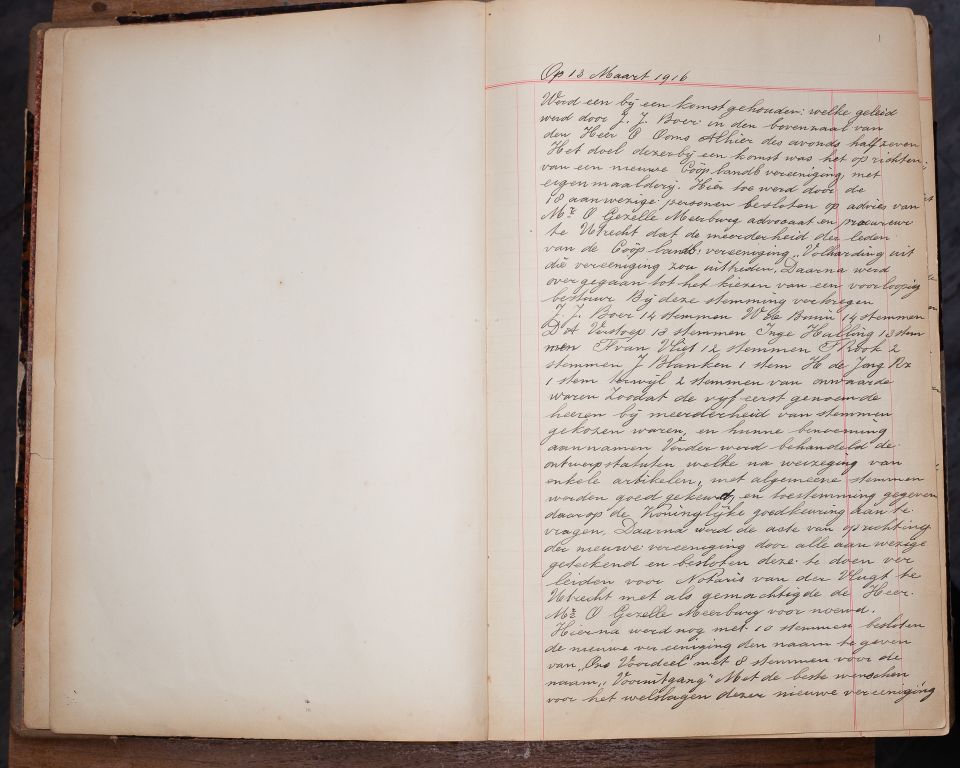 1
Op 13 Maart 1916
Werd een bij een komst gehouden: welke geleid
werd door J. J. Boer in den bovenzaal van
den Heer O Ooms Alhier des avonds half zeven
Het doel dezer bij een komst was het op richten
van een nieuwe Coöp landb vereeniging, met
eigen maalderij. Hier toe werd door de
18 aanwezige personen besloten op advies van
Mr. O Gezelle Meerburg advocaat en procureur
te Utrecht dat de meerderheid der leden
van de Coöp landb: vereeniging „Volharding uit
die vereeniging zou uittreden. Daarna werd
over gegaan tot het kiezen van een voorloopig
bestuur Bij deze stemming verkregen
J. J. Boer 14 stemmen W de Bruin 14 stemmen
D A Verstoep 13 stemmen Inge Halling 13 stem
men A van Vliet 12 stemmen Kook 2
stemmen J Blanken 1 stem H de Jong Rz
1 stem terwijl 2 stemmen van onwaarde
waren Zoodat de vijf eerst genoemde
heeren bij meerderheid van stemmen
gekozen waren, en hunne benoeming
aannamen Verder werd behandeld de
ontwerpstatuten welke na wijzeging van
enkele artikelen, met algemeene stemmen
worden goed gekeurd, en toestemming gegeven
daarop de Koninglijke goedkeuring aan te
vragen, Daarna werd de acte van oprichting
der nieuwe vereeniging door alle aan wezige
geteekend en besloten deze te doen ver
leiden voor Notaris van der Vlugt te
Utrecht met als gemachtigde de Heer.
Mr. O Gezelle Meerburg voor noemd.
Hierna werd nog met 10 stemmen besloten
de nieuwe ver eeniging den naam te geven
van „Ons Voordeel" met 8 stemmen voor de
naam „Vooruitgang" Met de beste wenschen
voor het welslagen dezer nieuwe vereeniging